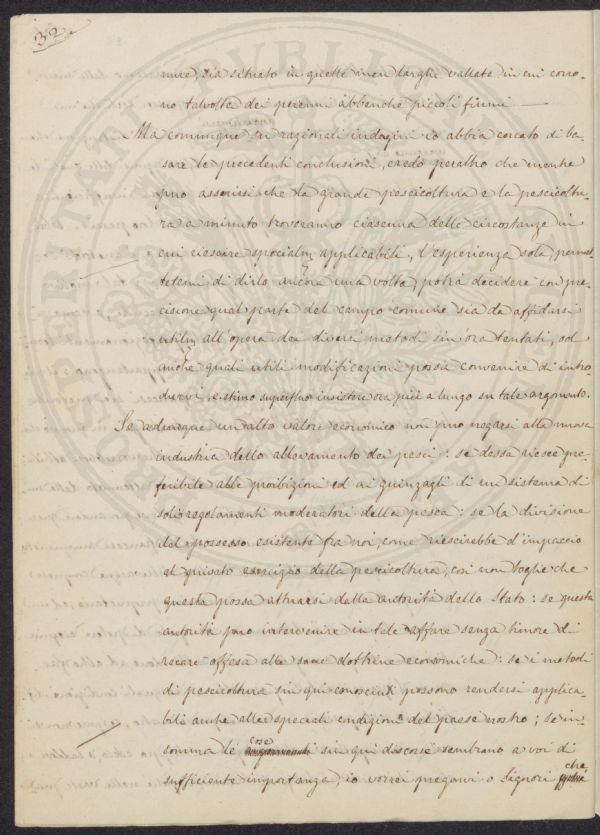 32
nure, sia situato in quelle men larghe vallate in cui corro-
no talvolta dei perenni abbenchè piccoli fiumi —
Ma comunque su razionali indagini io abbia cercato di ba-
sare le precedenti conclusioni, credo peraltro che mentre
può asserirsi che la grande pescicoltura e la pescicoltu-
ra a minuto troveranno ciascuna delle circostanze in
cui riescire specialm applicabili, l'esperienza sola, permet-
tetemi di dirlo ancora una volta, potrà decidere con pre-
cisione qual parte del campo comune sia da affidarsi
utilm all'opera dei diversi metodi sin'ora tentati, od
anche quali utili modificazioni possa convenire di intro-
durvi, e stimo superfluo insistere ora più a lungo su tale argomento.
Se adunque un alto valore economico non può negarsi alla nuova
industria dello allevamento dei pesci: se dessa riesce pre-
feribile alle proibizioni ed ai guinzagli di un sistema di
soli regolamenti moderatori della pesca: se la divisione
del possesso esistente fra noi, come riescirebbe d'impaccio
al privato esercizio della pescicoltura, così non toglie che
questa possa attuarsi dalla autorità dello Stato: se questa
autorità può intervenire in tale affare senza timore di
recare offesa alle sane dottrine economiche: se i metodi
di pescicoltura sin qui conosciuti possono rendersi applica-
bili anche alle speciali condizioni del paese nostro; se in-
somma le cose sin qui discorse sembrano a voi di
sufficiente importanza, io vorrei pregarvi o Signori che